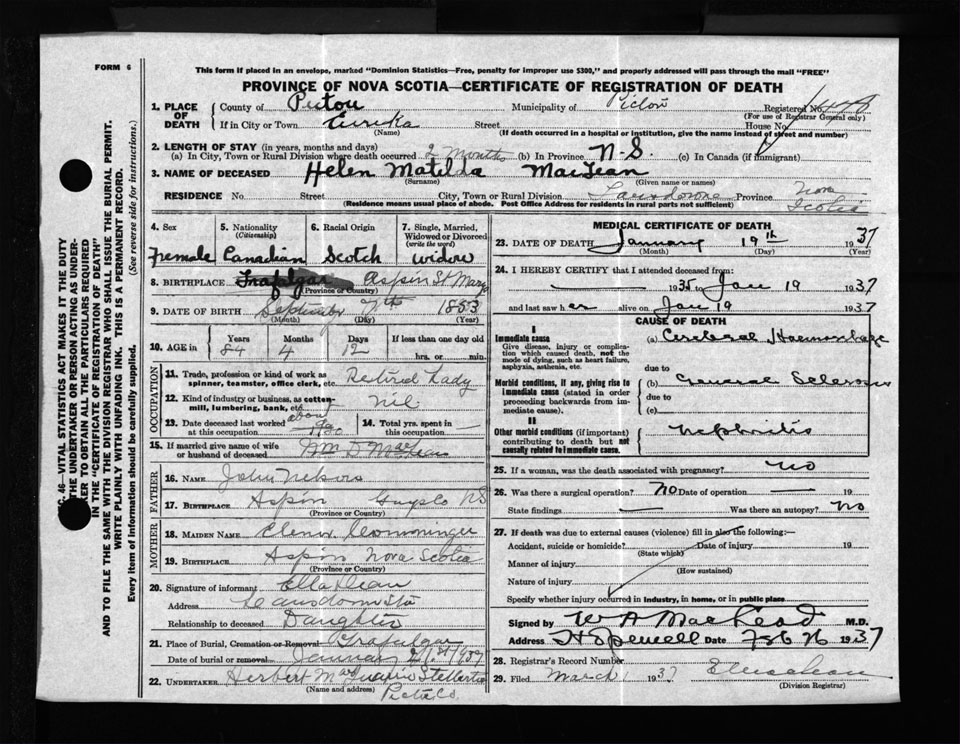 FORM 6
This form if placed in an envelope, marked "Dominion Statistics—Free, penalty for improper use $300," and properly addressed will pass through the mail "FREE"
PROVINCE OF NOVA SCOTIA—CERTIFICATE OF REGISTRATION OF DEATH
1. PLACE OF DEATH
County of Pictou Municipality of Pictou Registered No.
(For use of Registrar General only)
If in City or Town Eureka Street House No.
(Name) (If death occurred in a hospital or institution, give the name instead of street and number)
2. LENGTH OF STAY (in years, months and days)
(a) In City, Town or Rural Division where death occurred 2 Months (b) In Province N-S. (c) In Canada (if immigrant)
3. NAME OF DECEASED Helen Matilda MacLean
(Surname) (Given name or names)
RESIDENCE No. Street City, Town or Rural Division Lansdowne Province Nova Scotia
(Residence means usual place of abode. Post Office Address for residents in rural parts not sufficient)
4. Sex 5. Nationality (Citizenship) 6. Racial Origin 7. Single, Married, Widowed or Divorced (write the word)
Female Canadian Scotch Widow
8. BIRTHPLACE Trafalgar Aspin St Mary
(Province or Country)
9. DATE OF BIRTH September 7th 1853
(Month) (Day) (Year)
10. AGE in Years Months Days If less than one day old
84 4 12 hrs. or min.
OCCUPATION
11. Trade, profession or kind of work as spinner, teamster, office clerk, etc. Retired Lady
12. Kind of industry or business, as cotten-mill, lumbering, bank, etc. Nil
13. Date deceased last worked at this occupation about
14. Total yrs. spent in this occupation
15. If married give name of wife or husband of deceased Wm D MacLean
FATHER
16. NAME John
17. BIRTHPLACE Aspin Guysbo NS
(Province or Country)
MOTHER
18. MAIDEN NAME
19. BIRTHPLACE Aspin Nova Scotia
(Province or Country)
20. Signature of informant
Address Lansdowne Sta
Relationship to deceased Daughter
21. Place of Burial, Cremation or Removal Trafalgar
Date of burial or removal January 21st 1937
22. UNDERTAKER Herbert Stellarton
(Name and address) Pictu Co.
MEDICAL CERTIFICATE OF DEATH
23. DATE OF DEATH January 19th 1937
(Month) (Day) (Year)
24. I HEREBY CERTIFY that I attended deceased from:
1935 to Jan 19 1937
and last saw her alive on Jan 19 1937
CAUSE OF DEATH
I
Immediate cause
Give disease, injury or complication which caused death, not the mode of dying, such as heart failure, asphyxia, asthenia, etc.
(a) Cerebral Haemorrhage
due to
Morbid conditions, if any, giving rise to immediate cause (stated in order proceeding backwards from immediate cause).
(b) General Sclerosis
due to
(c)
II
Other morbid conditions (if important) contributing to death but not causally related to immediate cause.
Nephritis
25. If a woman, was the death associated with pregnancy? no
26. Was there a surgical operation? NO Date of operation 19
State findings Was there an autopsy? No
27. If death was due to external causes (violence) fill in also the following:—
Accident, suicide or homicide? Date of injury 19
(State which)
Manner of injury
(How sustained)
Nature of injury
Specify whether injury occurred in industry, in home, or in public place
Signed by W A MacLeod M.D.
Address Hopewell Date Feb 26 1937
28. Registrar's Record Number
29. Filed March 1 1937
(Division Registrar)
C. 46—VITAL STATISTICS ACT MAKES IT THE DUTY
THE UNDERTAKER OR PERSON ACTING AS UNDER-
KER TO OBTAIN ALL THE PARTICULARS REQUIRED
IN THE "CERTIFICATE OF REGISTRATION OF DEATH"
AND TO FILE THE SAME WITH THE DIVISION REGISTRAR WHO SHALL ISSUE THE BURIAL PERMIT.
WRITE PLAINLY WITH UNFADING INK. THIS IS A PERMANENT RECORD.
Every item of information should be carefully supplied. (See reverse side for instructions.)